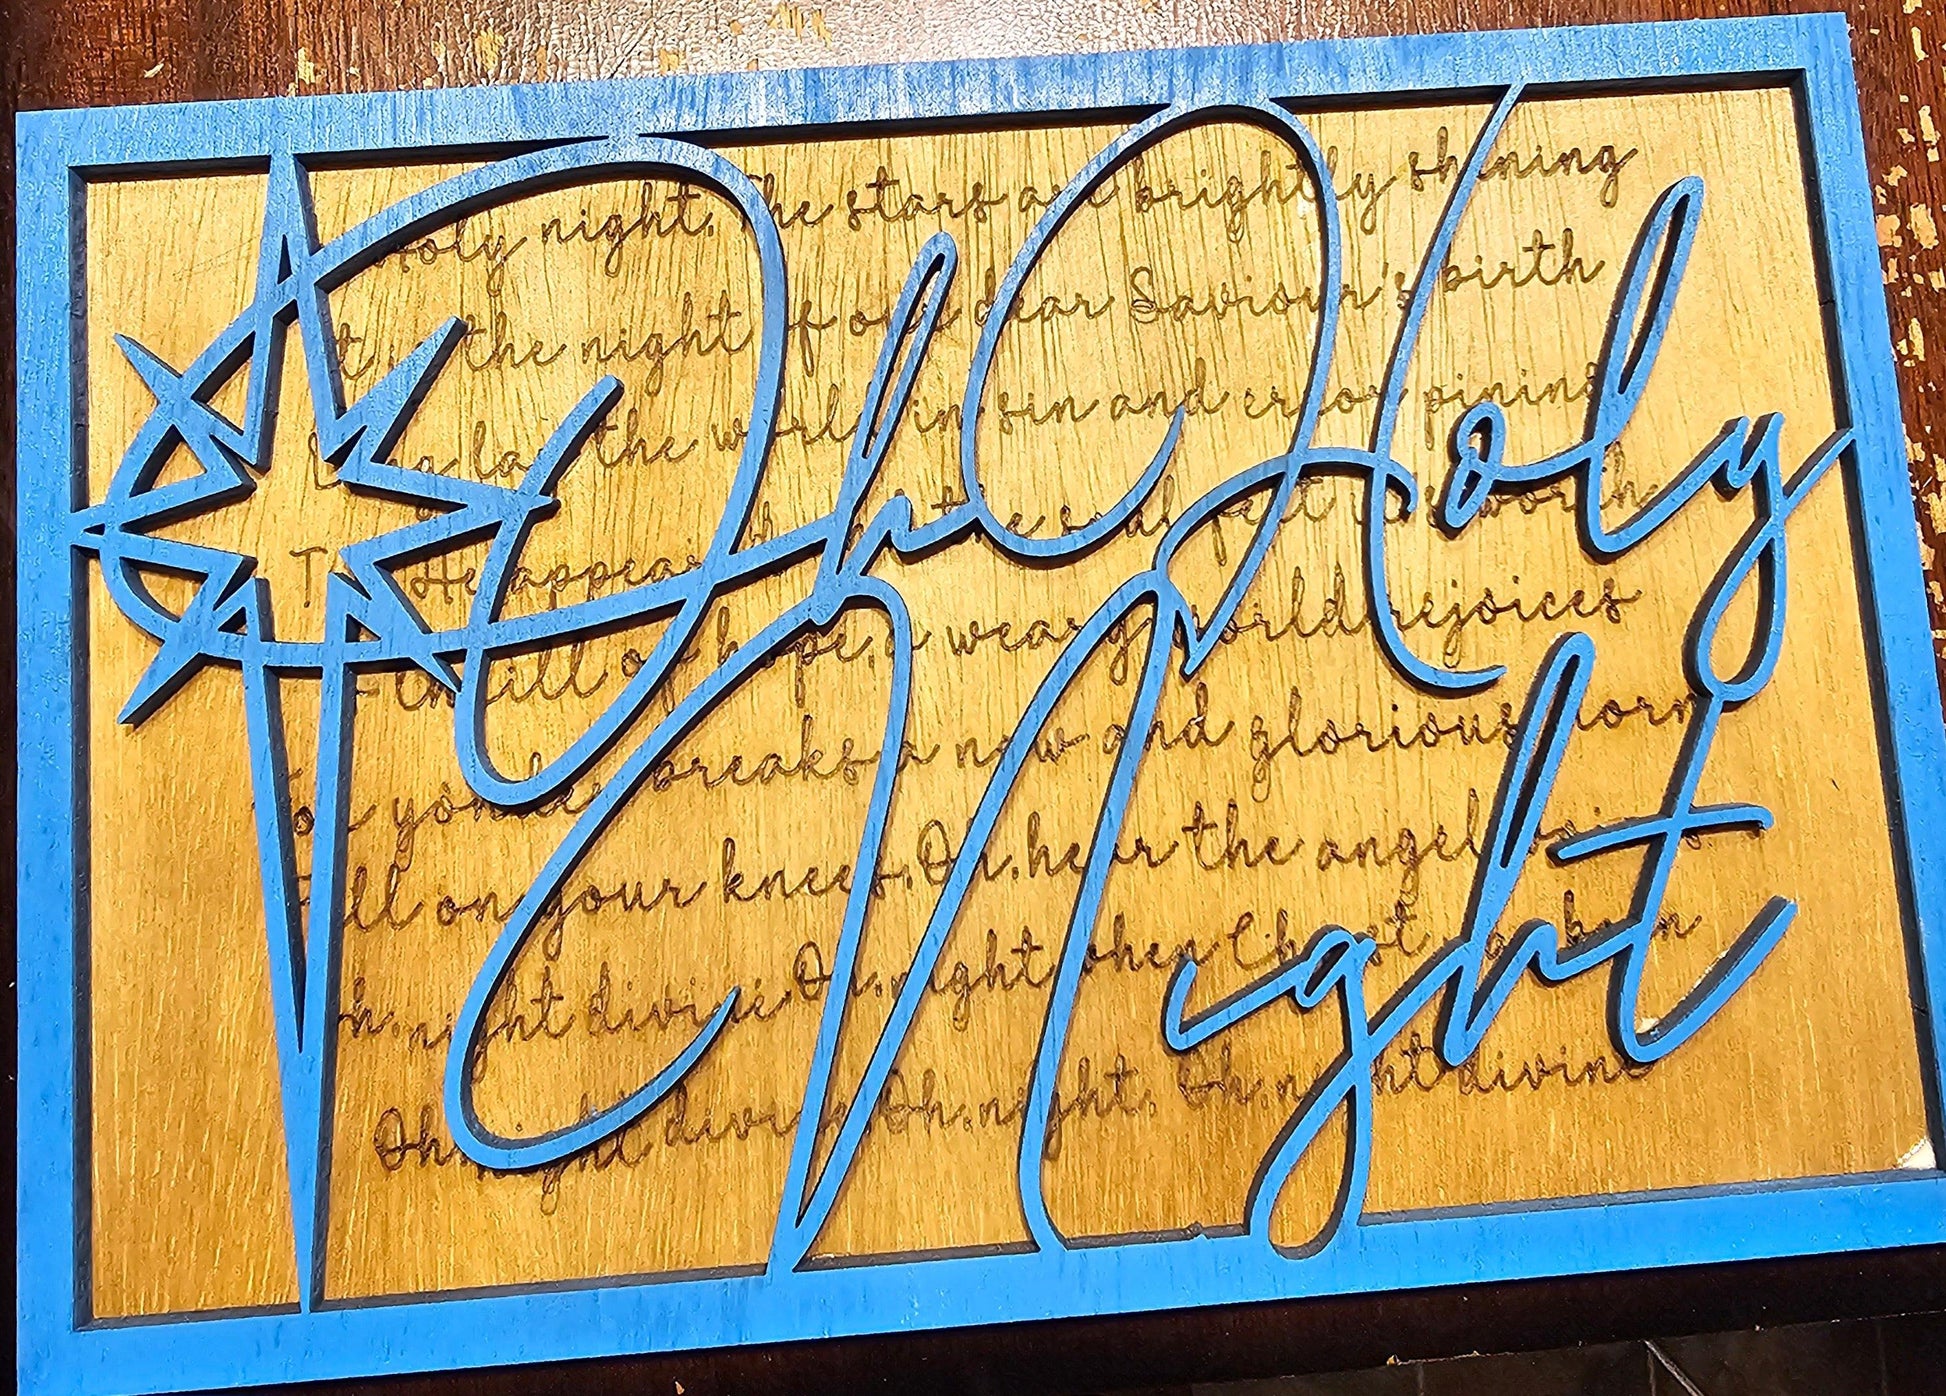 Oh Holy
Night
holy night, The stars are brightly shining
the night of our dear Saviour's birth
lay the world in sin and error pining
He appeared the soul felt its worth
thrill of hope, a weary world rejoices
For yonder breaks a new and glorious morn
Fall on your knees, Oh, hear the angel voices
night divine, Oh, night when Christ born
Oh, night divine, Oh, night, Oh, night divine